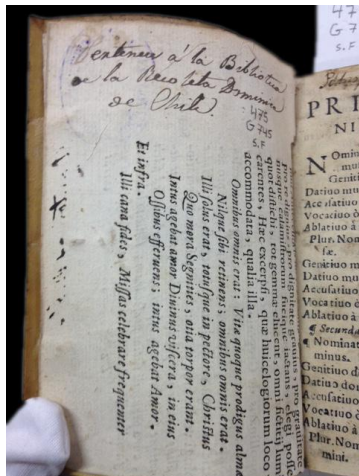 Pertenece á la Biblioteca
de la Recoleta Dominica
de Chile.
475
G 745
S.F
pro re dignitate, pro dignitate gravius, pro gravitate
fucique iactans, elegi posse
quot distichi, tot gemmæ eluceent, omni fictitij lum
carentes. Hæc excerpsi, quæ huic elogiorum loco
accommodata, qualia illa.
Omnibus omnis erat: Vitæ quoque prodigus almæ
Nilque sibi retinens, omnibus omnis erat.
Illi solus erat, totusque in pectore, Christus
Quo mera Segnities, otia torpor erant.
Intus agebat amor Divinus viscera, in eius
Ossibus effervens, intus agebat Amor.
Et infra.
Illi cana fides, Missas celebrare frequenter
47
G 7
S.F
PRI
NI
Nomin
mu
Genitiu
Datiuo mu
Accusatiuo
Vocatiuo
Ablatiuo à
Plur. Nom
sæ.
Genitiuo m
Datiuo mu
Accusatiuo
Vocatiuo ô
Ablatiuo à
¶ Secunda
¶ Nominat
minus.
Genitiuo d
Datiuo do
Accusatiuo
Vocatiuo ô
Ablatiuo à
Plur. Nom
mini.